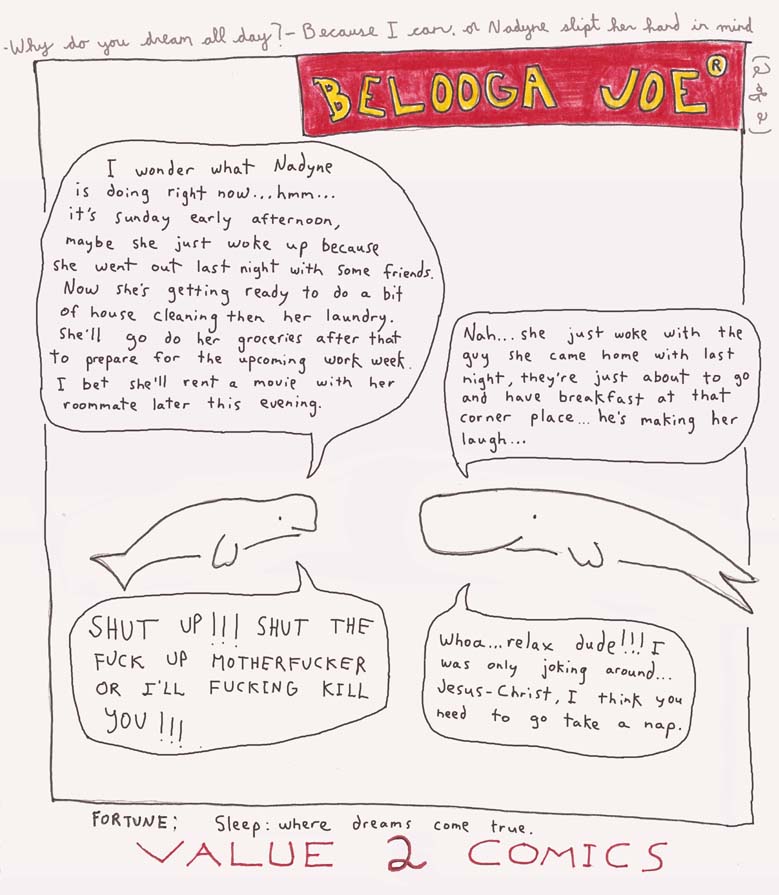 -Why do you dream all day?- Because I can. or Nadyne slipt her hand in mind
BELOOGA JOE®
I wonder what Nadyne
is doing right now...hmm...
it's Sunday early afternoon,
maybe she just woke up because
she went out last night with some friends.
Now she's getting ready to do a bit
of house cleaning then her laundry.
She'll go do her groceries after that
to prepare for the upcoming work week.
I bet she'll rent a movie with her
roommate later this evening.
Nah... she just woke with the
guy she came home with last
night, they're just about to go
and have breakfast at that
corner place... he's making her
laugh...
SHUT UP!!! SHUT THE
FUCK UP MOTHERFUCKER
OR I'LL FUCKING KILL
YOU!!!
Whoa...relax dude!!! I
was only joking around...
Jesus-Christ, I think you
need to go take a nap.
FORTUNE; Sleep: where dreams come true.
VALUE 2 COMICS